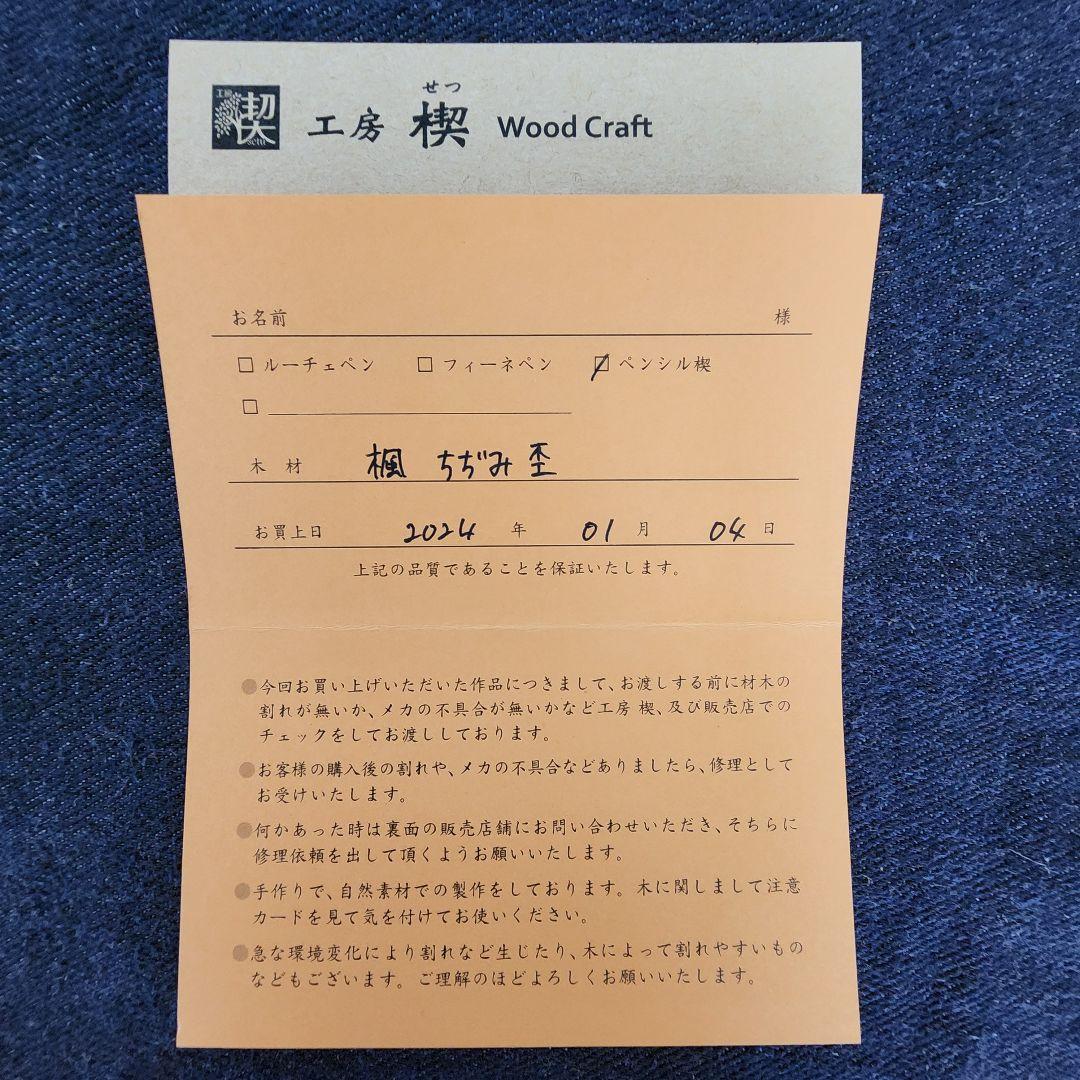 工房
楔
setu
せつ
工房 楔 Wood Craft
お名前 様
□ ルーチェペン □ フィーネペン ☑ ペンシル楔
□
木材 楓 ちぢみ杢
お買上日 2024 年 01 月 04 日
上記の品質であることを保証いたします。
●今回お買い上げいただいた作品につきまして、お渡しする前に材木の
割れが無いか、メカの不具合が無いかなど工房 楔、及び販売店での
チェックをしてお渡ししております。
●お客様の購入後の割れや、メカの不具合などありましたら、修理として
お受けいたします。
●何かあった時は裏面の販売店舗にお問い合わせいただき、そちらに
修理依頼を出して頂くようお願いいたします。
●手作りで、自然素材での製作をしております。木に関しまして注意
カードを見て気を付けてお使いください。
●急な環境変化により割れなど生じたり、木によって割れやすいもの
などもございます。ご理解のほどよろしくお願いいたします。